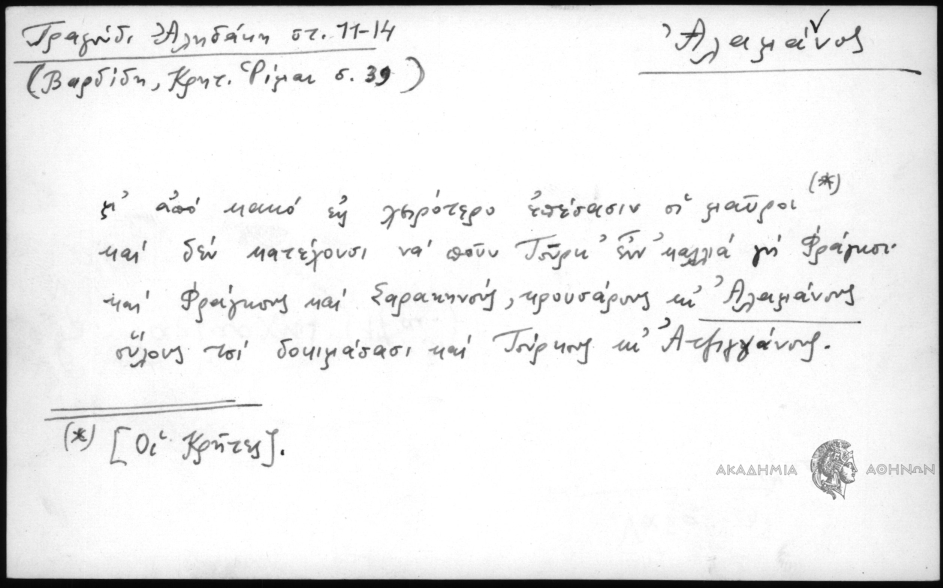 Τραγούδι Ἀληδάκη στ. 11-14
Ἀλαμάνος
(Βαρδίδη, Κρητ. Ρίμαι σ. 39)
κι ἀπό κακό εἰς χειρότερο ἐπέσασιν οἱ μαῦροι (*)
καί δέν κατέχουσι νά ποῦν Τοῦρκ' εἶν' καλλιά γή Φράγκοι.
καί Φράγκους καί Σαρακηνούς, κρουσάρους κι' Ἀλαμάνους
οὕλους τσί δοκιμάσασι καί Τούρκους κι' Ἀτζιγγάνους.
(*) [Οἱ Κρῆτες].
ΑΚΑΔΗΜΙΑ ΑΘΗΝΩΝ